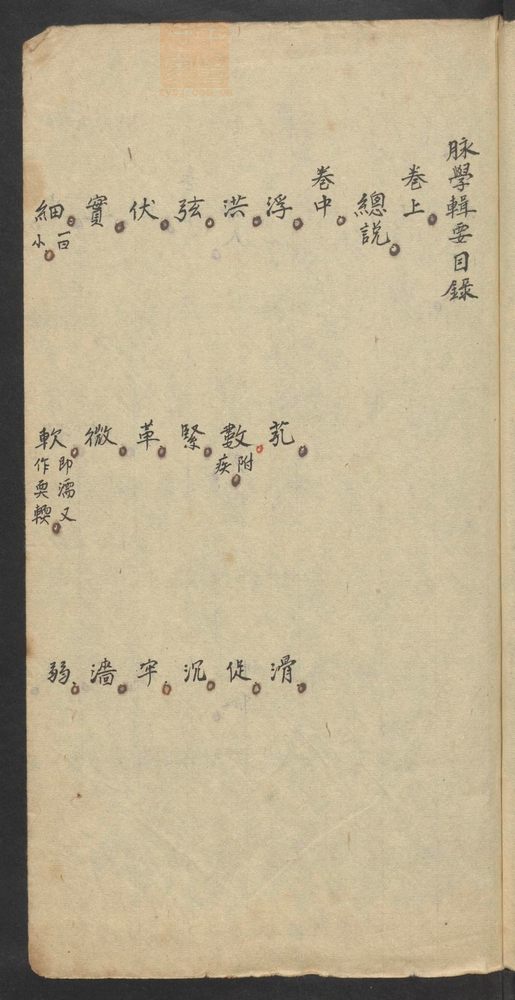 脉學輯要目錄
卷上
總說
卷中
浮 芤 滑
洪 數附疾 促
弦 緊 沉
伏 革 牢
實 微 濇
細一曰小 軟即濡又作耎輭 弱